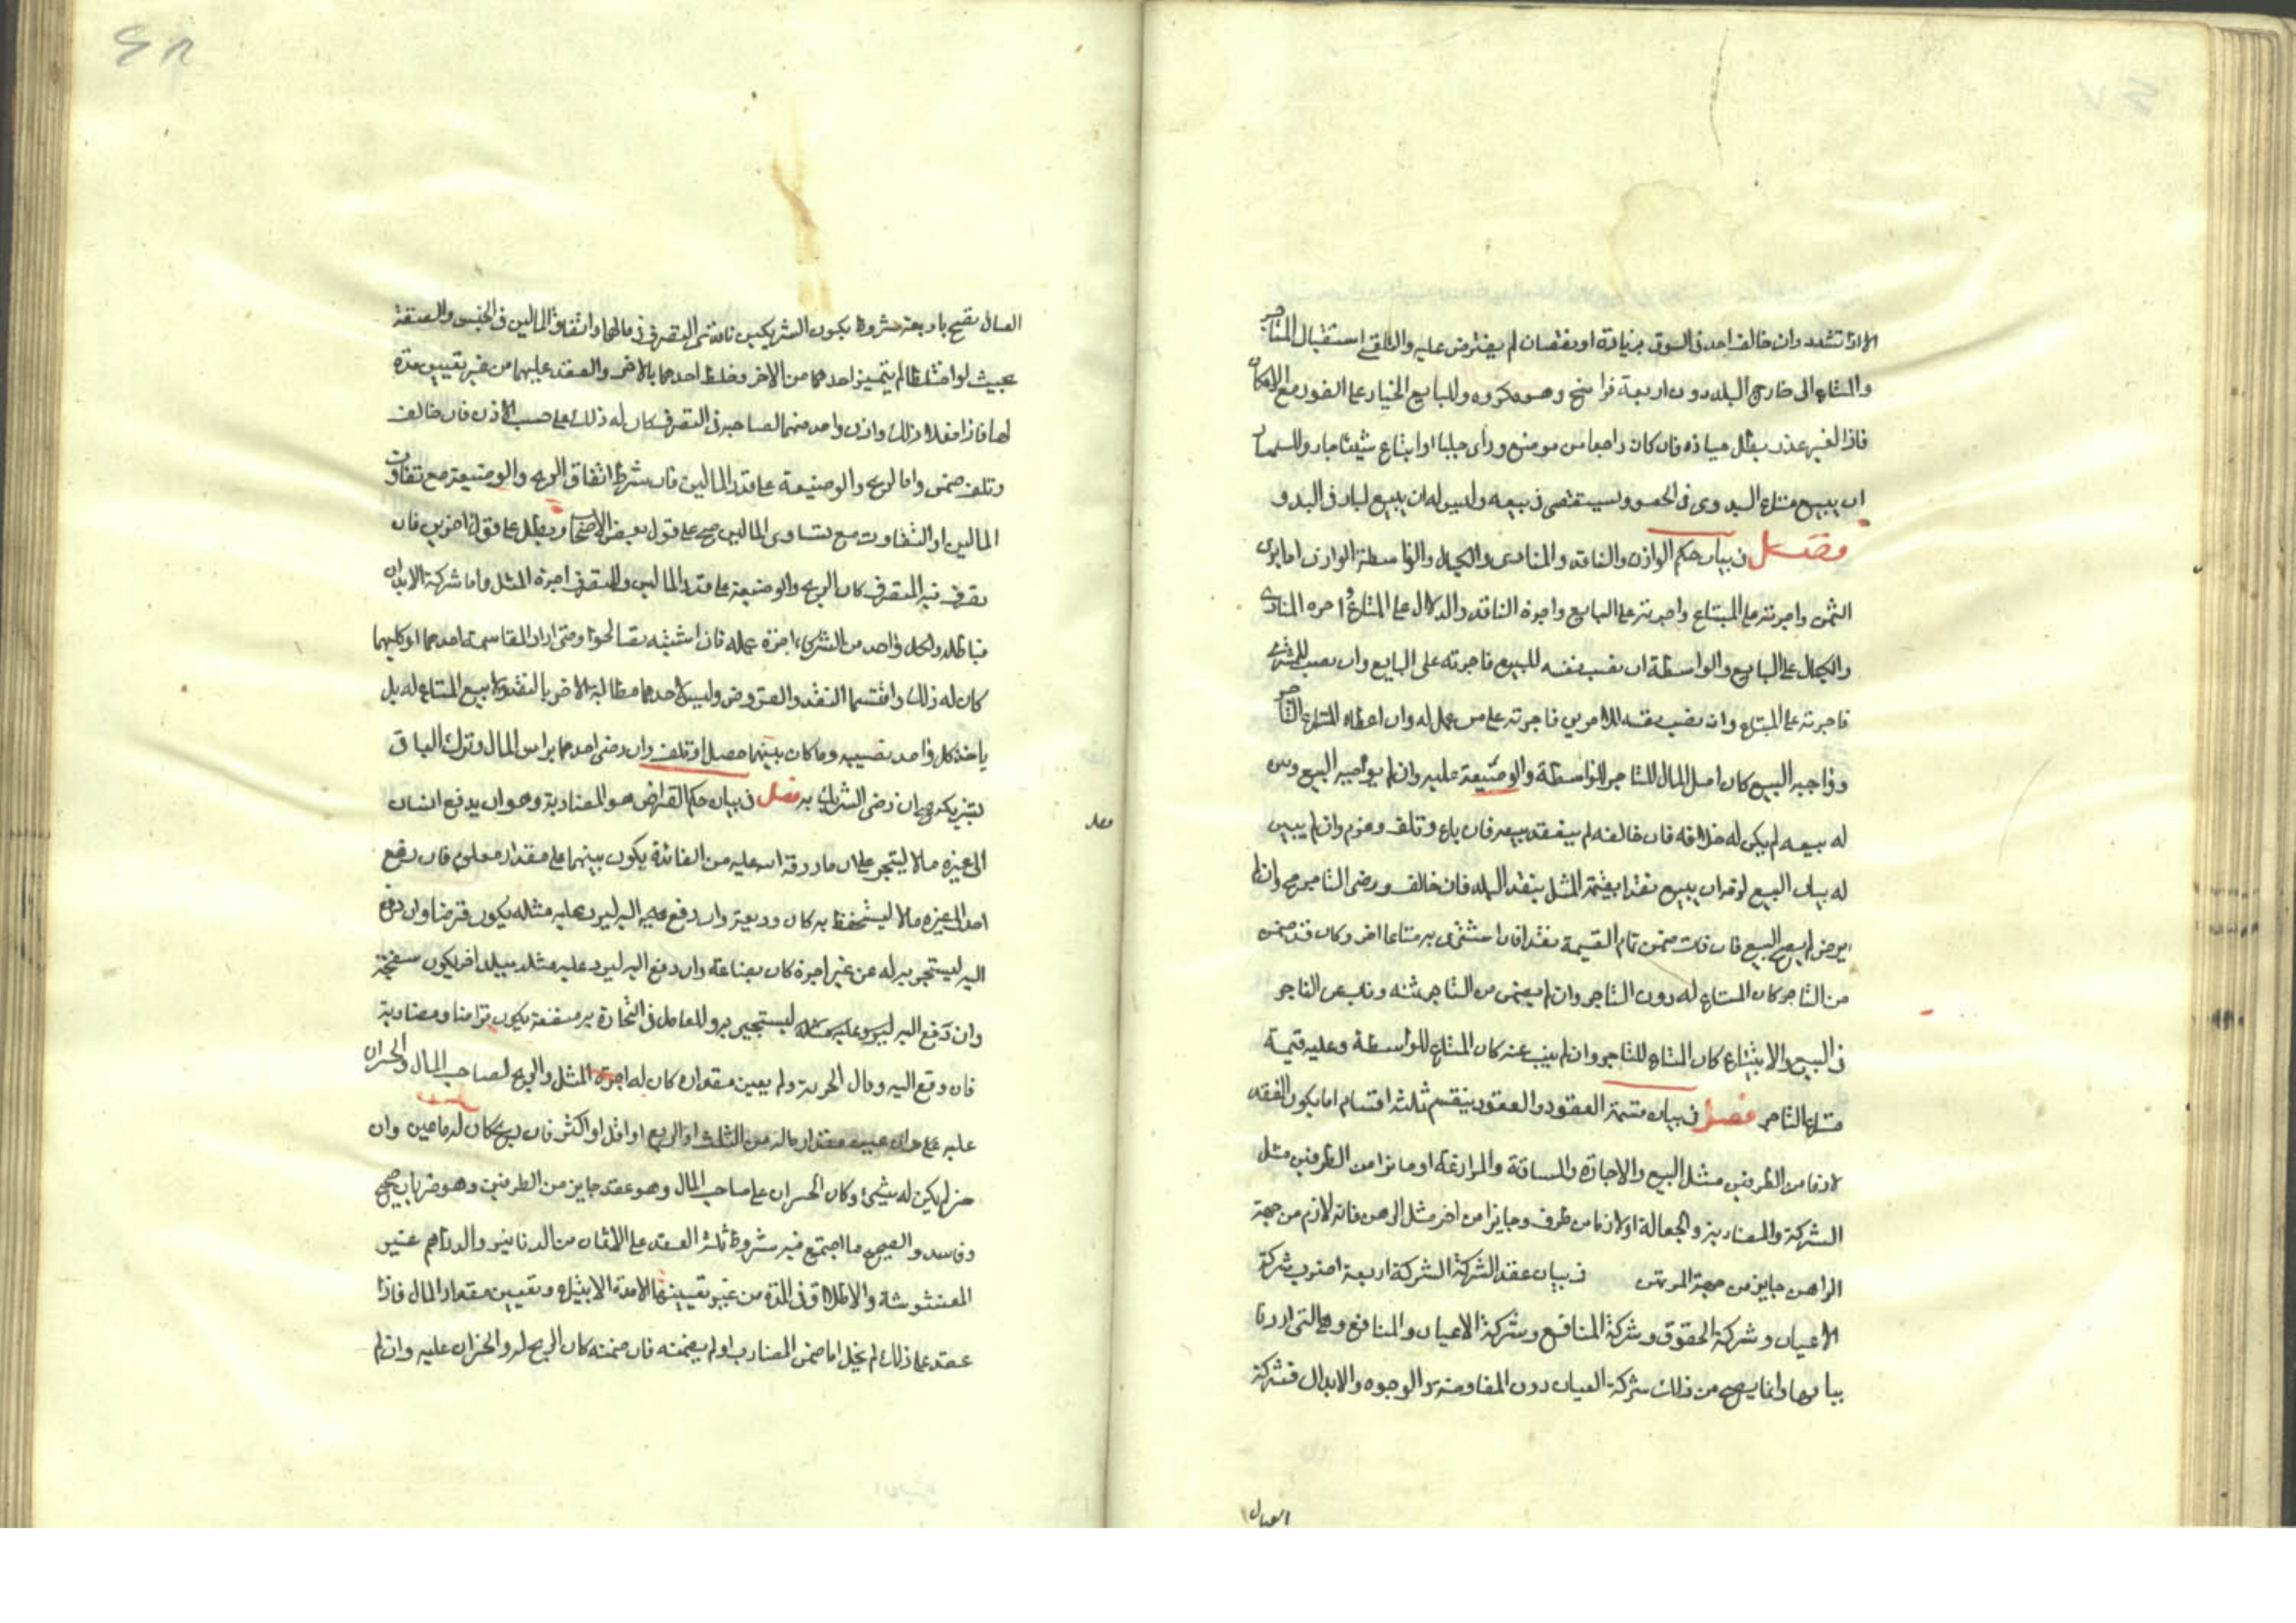 الا اذا تشدد وان خالف احد فى السوق بزيادة او نقصان لم يعترض عليه والتلقى استقبال المتاجر
والمتاع الى خارج البلد دون اربعة فراسخ وهو مكروه وللبايع الخيار على الفور مع الامكان
فاذا لغير عذر بطل خياره فان كان راجعا من موضع وراى جلبا او ابتاع شيئا جاز وللسمسار
ان يبيع متاع البدوى فى الحضر ويستقصى فى بيعه وليس له ان يبيع لباد فى البدو
فصل فى بيان حكم الوازن والناقد والمنادى والكيال والواسطة الوازن اما يزن
الثمن واجرته على المبتاع واجرته على البايع واجرة الناقد والدلال على المبتاع واجره المنادى
والكيال على البايع والواسطة ان نصب نفسه للبيع فاجرته على البايع وان نصب للشرى
فاجرته على المبتاع وان نصب نفسه للامرين فاجرته على من عمل له وان اعطاه المتاع التاجر
وواجبه البيع كان اصل المال للتاجر للواسطة والوضيعة عليه وان لم يواجبه البيع وبين
له بيعه لم يكن له خلافه فان خالفه لم ينعقد بيعه فان باع وتلف وغرم وان لم يبين
له بيان البيع لزمه ان يبيع نقدا بقيمة المثل بنقد البلد فان خالف ورضى التاجر صح وان لم
يرض لم يصح البيع فان فات ضمن تمام القيمة نقدا فان اشترى به متاعا اخر وكان قد ضمن
من التاجر كان المتاع له دون التاجر وان لم يضمن من التاجر ثمنه وناب عن التاجر
فى البيع والابتياع كان المتاع للتاجر وان لم ينب عنه كان المتاع للواسطة وعليه قيمة
متاع التاجر فصل فى بيان قسمة العقود والعقود ينقسم ثلثة اقسام اما يكون العقد
لازما من الطرفين مثل البيع والاجارة والمساقة والمزارعة او جائزا من الطرفين مثل
الشركة والمضاربة والجعالة او لازما من طرف وجايزا من اخر مثل الرهن فانه لازم من جهة
الراهن جايز من جهة المرتهن فى بيان عقد الشركة الشركة اربعة اضرب شركة
الاعيان وشركة الحقوق وشركة المنافع وشركة الاعيان والمنافع وهى التى اردنا
بيانها وانما يصح من ذلك شركة العيان دون المفاوضة والوجوه والابدان فشركة
العيان
العيان تصح باربعة شروط يكون الشريكين نافذى التصرف فى مالهما واتفاق المالين فى الجنس والصفة
بحيث لو اختلطا لم يتميز احدهما من الاخر وخلط احدهما بالاخر والعقد عليهما من غير تعيين مدة
لها فاذا فعلا ذلك واذن واحد منهما لصاحبه فى التصرف كان له ذلك على حسب الاذن فان خالف
وتلف ضمن واما الربح والوضيعة على قدر المالين فان شرط اتفاق الربح والوضيعة مع تفاوت
المالين او التفاوت مع تساوى المالين صح على قول بعض الاصحاب وبطل على قول اخرين فان
تصرف فيه المتصرف كان الربح والوضيعة على قدر المالين وللمتصرف اجرة المثل واما شركة الابدان
فباطلة ولكل واحد من الشركاء اجرة عمله فان اشتبه تصالحوا ومتى اراد المقاسمة احدهما او كليهما
كان له ذلك واقتسما النقد والعروض وليس لاحدهما مطالبة الاخر بالنقد ولا بيع المتاع له بل
ياخذ كل واحد نصيبه وما كان بينهما حصل او تلف وان رضى احدهما براس المال وترك الباقى
لشريكه صح ان رضى الشريك به فصل فى بيان حكم القراض هو المضاربة وهو ان يدفع انسان
الى غيره مالا ليتجر على ان ما رزقه الله عليه من الفائدة يكون بينهما على مقدار معلوم فان دفع
احد الى غيره مالا ليتحفظ به كان وديعة وان دفع اليه ليرد عليه مثله يكون قرضا وان دفع
اليه ليتجر به له من غير اجرة كان بضاعة وان دفع اليه ليرد عليه مثله ببلد اخر يكون سفتجة
وان دفع اليه ليرد عليه مثله ليتجر به وللعامل فى التجارة به منفعة يكون قراضا ومضاربة
فان دفع اليه وقال الحر به ولم يعين مقداره كان له اجرة المثل والربح لصاحب المال والخسران
عليه وان عين مقدار ماله من الثلث او الربع او اقل او اكثر فان ربح كان له ما عين وان
خسر لم يكن له شىء وكان الخسران على صاحب المال وهو عقد جايز من الطرفين وهو ضربان صحيح
وفاسد والصحيح ما اجتمع فيه شروط ثلثة العقد على الاثمان من الدنانير والدراهم غير
المغشوشة والاطلاق فى المدة من غير تعيينها الا مدة الابتياع وتعيين مقدار المال فاذا
عقد على ذلك لم يخل اما ضمن المضارب او لم يضمنه فان ضمنه كان الربح له والخسران عليه وان لم